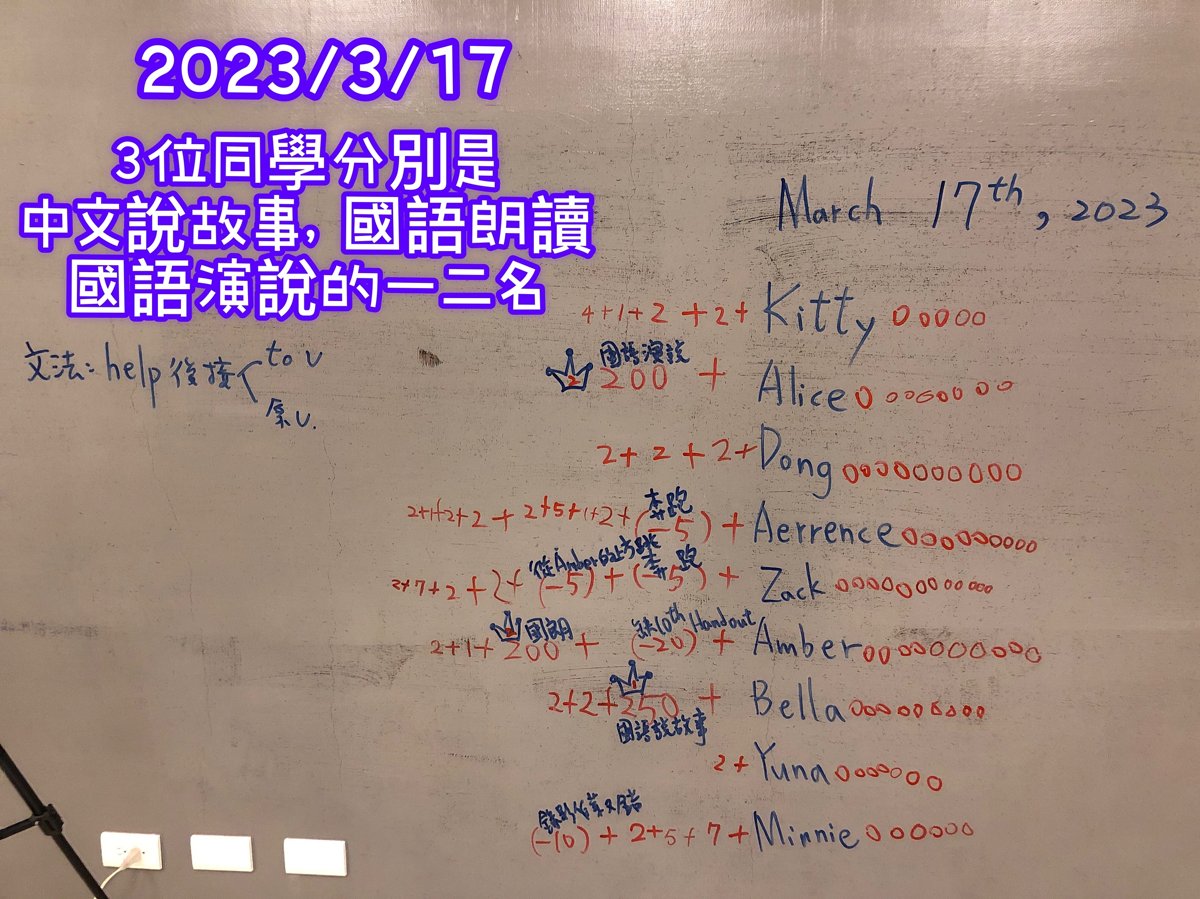 2023/3/17
3位同學分別是
中文說故事, 國語朗讀
國語演說的一二名
March 17th, 2023
文法: help 後接
to v
原v.
4+1+2+2+ Kitty ooooo
國語演說
2 200 + Alice oooooooo
2+2+2+ Dong oooooooooo
奔跑
2+1+2+2+2+5+1+2+(-5)+ Aerrence
從Amber的
奔跑
2+7+2+2+(-5)+(-5)+ Zack
國朗
缺10th Handout
2+1+200+(-20)+ Amber
2+2+250+ Bella
國語說故事
2+ Yuna
(-10)+2+5+7+ Minnie oooooo